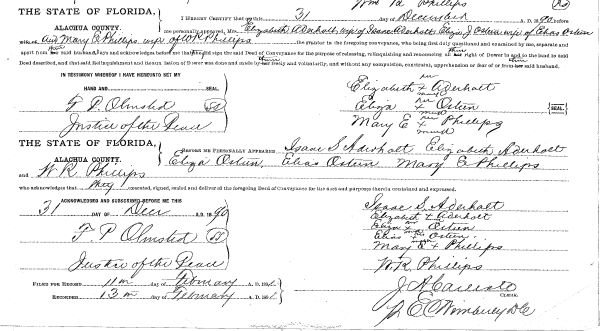 Wm R Phillips
THE STATE OF FLORIDA,
ALACHUA COUNTY.
I HEREBY CERTIFY that on this 31 day of December A. D. 1890 before
me personally appeared, Mrs Elizabeth Aderholt, wife of Isaac Aderholt, Eliza J Osteen, wife of Elias Osteen
and Mary E Phillips wife of W R Phillips the grantor in the foregoing conveyance, who being first duly questioned and examined by me, separate and
apart from her said husband, and acknowledges before me that she signed the said Deed of Conveyance for the purpose of releasing, relinquishing and renouncing all her right of Dower in and to the land in said
Deed described, and that said Relinquishment and Renunciation of Dower was done and made by her freely and voluntarily, and without any compulsion, constraint, apprehension or fear of or from her said husband.
IN TESTIMONY WHEREOF I HAVE HEREUNTO SET MY
HAND AND SEAL
F. P. Olmsted
Justice of the Peace
her
Elizabeth + Aderholt
mark
her
Eliza + Osteen
mark
her
Mary E + Phillips
mark
SEAL
THE STATE OF FLORIDA,
ALACHUA COUNTY.
BEFORE ME PERSONALLY APPEARED Isaac S Aderholt Elizabeth Aderholt
Eliza Osteen, Elias Osteen Mary E Phillips
and W. R. Phillips
who acknowledges that they executed, signed, sealed and deliver the foregoing Deed of Conveyance for the uses and purposes therein contained and expressed.
ACKNOWLEDGED AND SUBSCRIBED BEFORE ME THIS
31 DAY OF Decr A. D. 1890
F. P. Olmsted
Justice of the Peace
Isaac S. Aderholt
Elizabeth + Aderholt
Eliza + Osteen
Elias Osteen
Mary E + Phillips
W. R. Phillips
FILED FOR RECORD 11th day of February A. D. 1891
RECORDED 13th day of February A. D. 1891
J. A. Carlisle
CLERK.